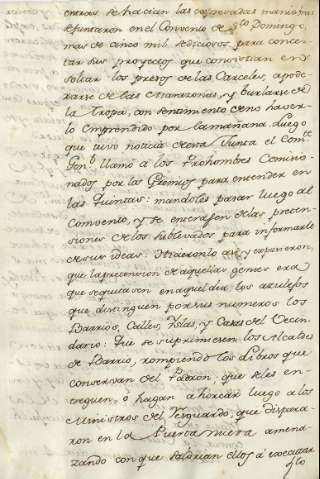 entras se hacian las expresadas maniobras
se juntaron en el Convento de Sto Domingo,
mas de cinco mil sediciosos para concer-
tar sus proyectos que consistian en
soltar los presos de las Carceles, apode-
rarse de las Atarazanas, y burlarse de
la Tropa, con sentimiento de no haver-
lo emprendido por la mañana. Luego
que tuvo noticia de esta Junta el Comte
Genl llamó a los Prohombres comisio-
nados por los Gremios para entender en
las Quintas: mandoles pasar luego al
Convento, y se enterasen de las preten-
siones de los sublevados para informarle
de sus ideas. Hicieronlo asi, y expusieron,
que la pretencion de aquellas gentes era
que se quitasen en aquel dia los azulejos
que distinguen por sus numeros los
Barrios, Calles, Yslas, y Casas del Vecin-
dario: Que se suprimiesen los Alcaldes
de Barrio, rompiendo los Libros que
conservan del Padron, que se les en-
treguen, ò hagan ahorcar luego a los
Ministros del Resguardo, que dispara-
ron en la Puerta nueva amena-
zando con que saldrian ellos à executar
lo